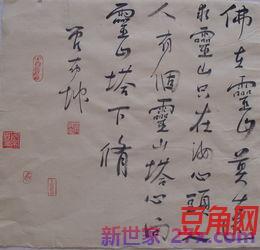 佛在靈山莫遠
求靈山只在汝心頭人
人有個靈山塔心向
靈山塔下修
豆角网
新世家